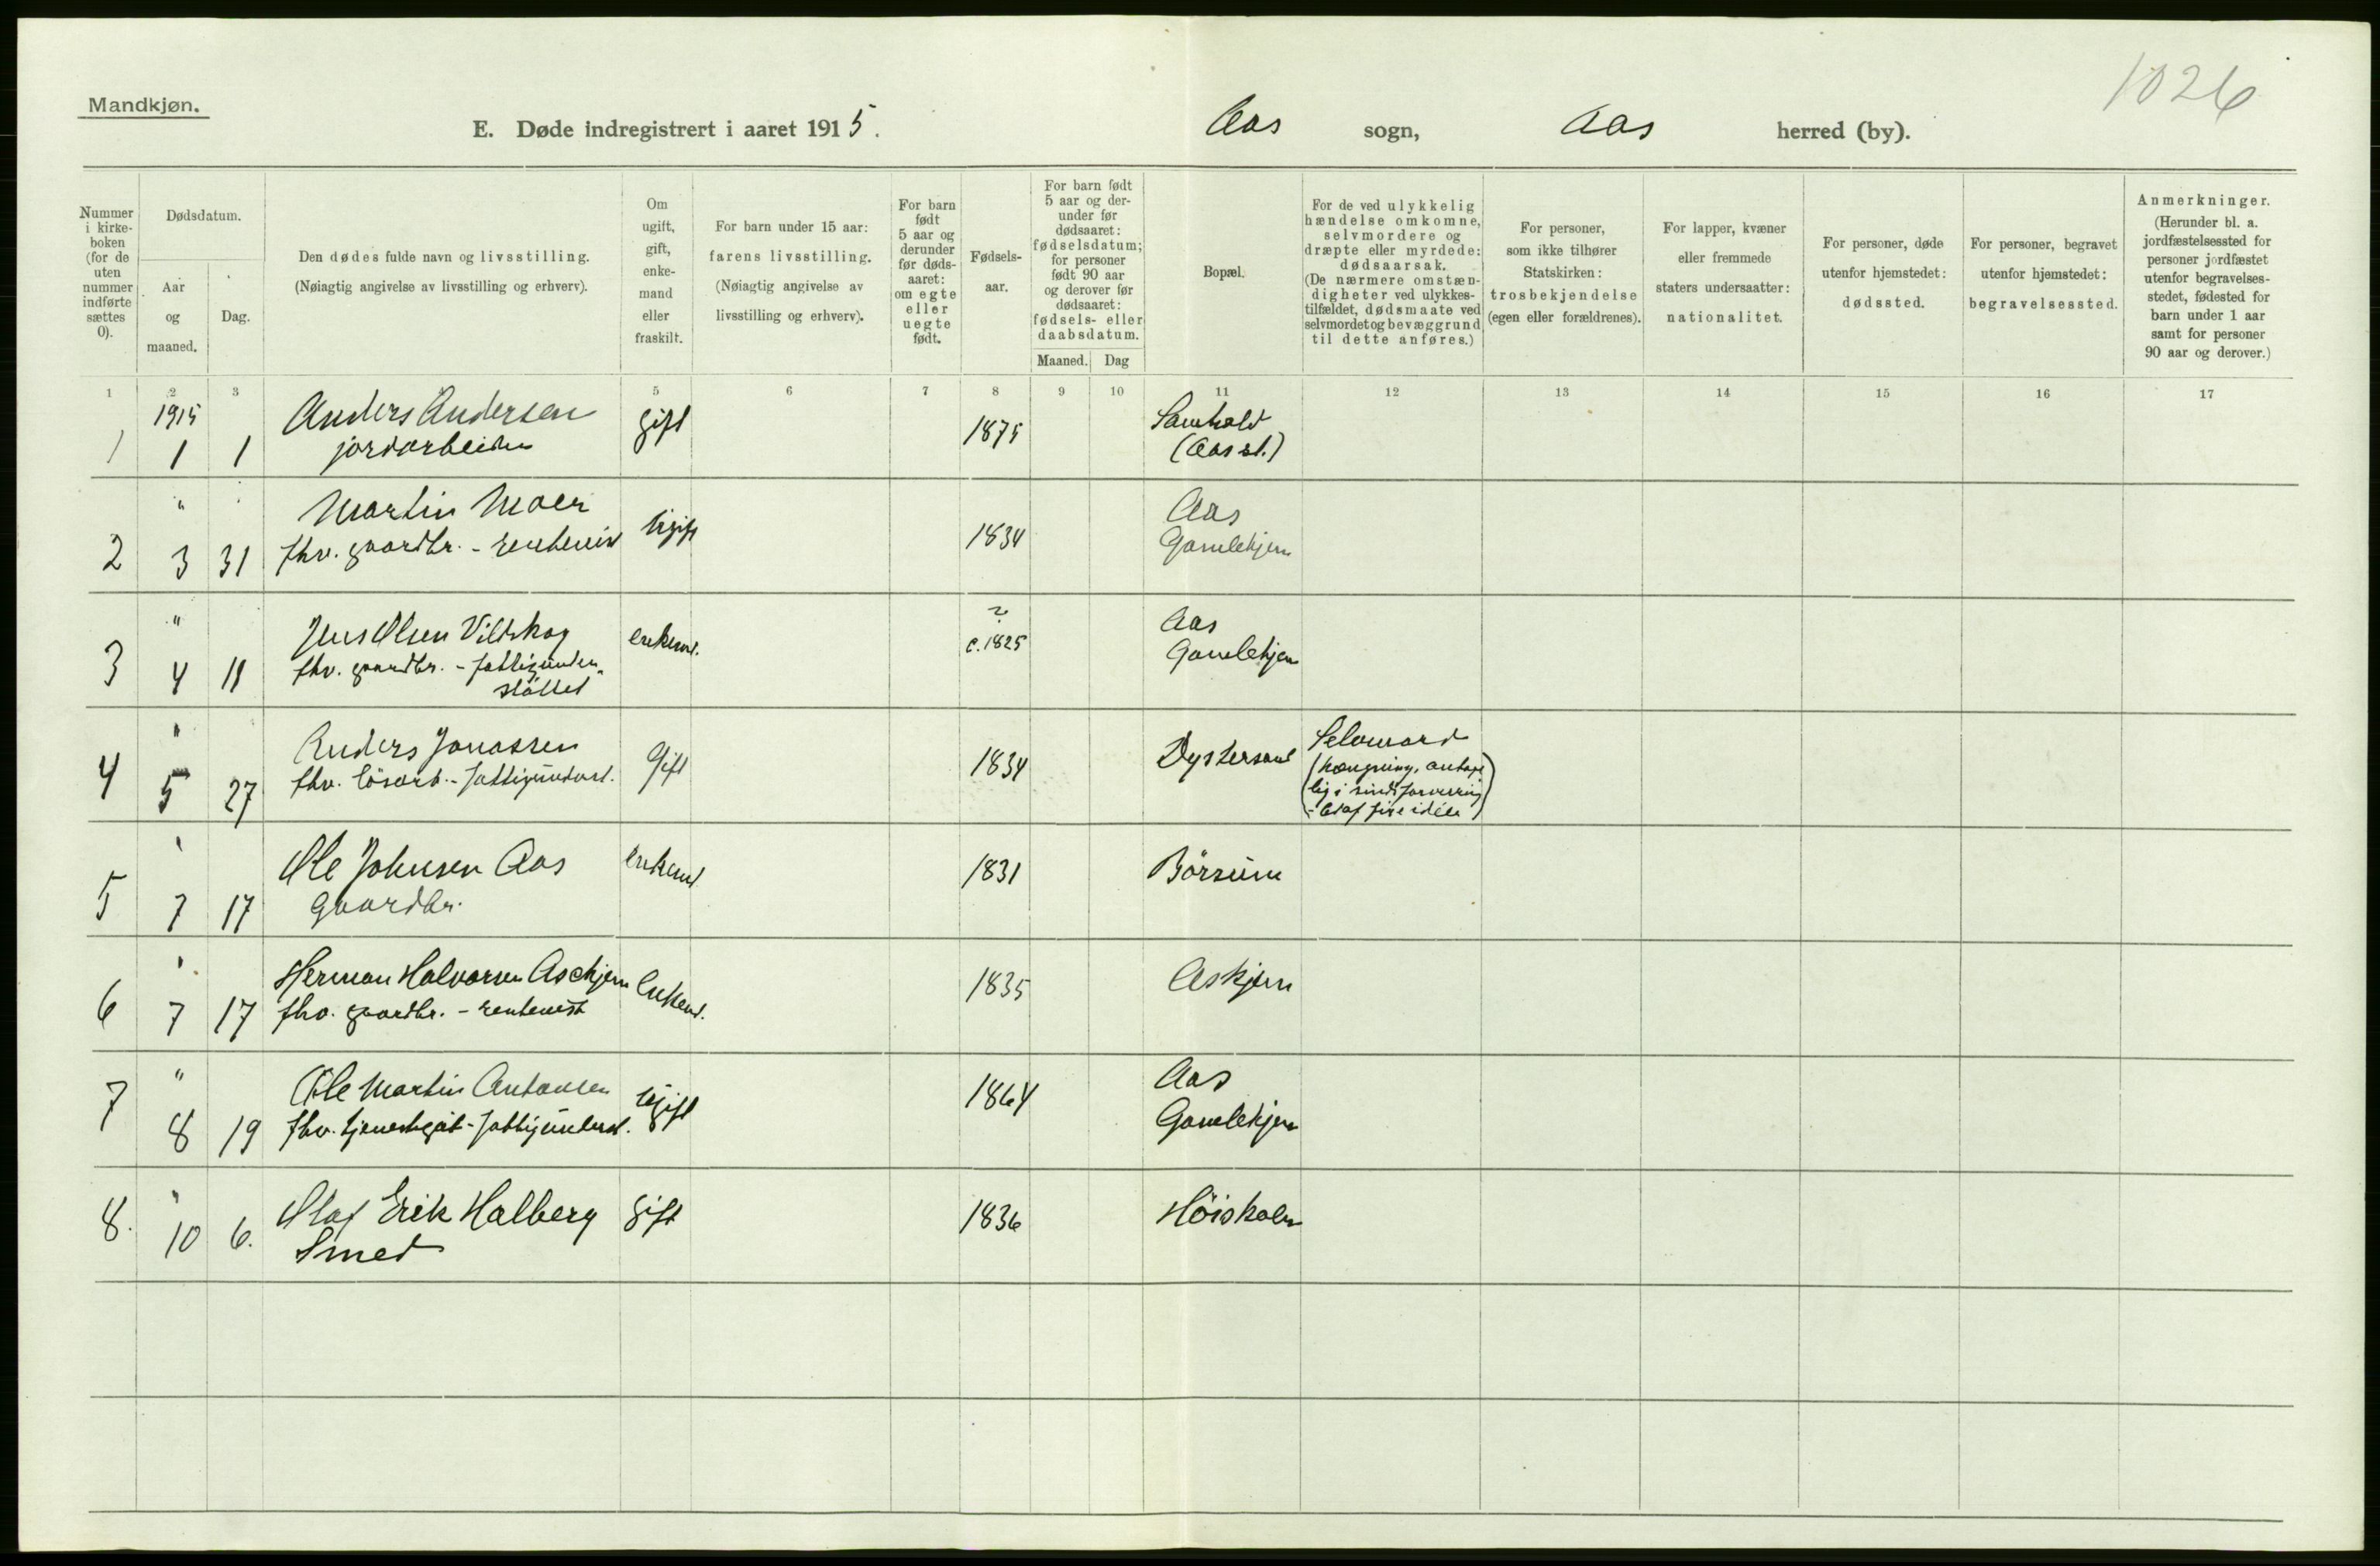 Mandkjøn.
1026
E. Døde indregistrert i aaret 1915.
Aas sogn, Aas herred (by).
Nummer i kirke- boken (for de uten nummer indførte sættes 0).
Dødsdatum.
Aar og maaned.
Dag.
Den dødes fulde navn og livsstilling.
(Nøiagtig angivelse av livsstilling og erhverv).
Om ugift, gift, enke- mand eller fraskilt.
For barn under 15 aar: farens livsstilling. (Nøiagtig angivelse av livsstilling og erhverv).
For barn født 5 aar og derunder før døds- aaret: om egte eller uegte født.
Fødsels- aar.
For barn født 5 aar og der- under før dødsaaret: fødselsdatum; for personer født 90 aar og derover før dødsaaret: fødsels- eller daabsdatum.
Maaned. Dag
Bopæl.
For de ved ulykkelig hændelse omkomne, selvmordere og dræpte eller myrdede: dødsaarsak. (De nærmere omstæn- digheter ved ulykkes- tilfældet, dødsmaate ved selvmordet og bevæggrund til dette anføres.)
For personer, som ikke tilhører Statskirken: trosbekjendelse (egen eller forældrenes).
For lapper, kvæner eller fremmede staters undersaatter: nationalitet.
For personer, døde utenfor hjemstedet: dødssted.
For personer, begravet utenfor hjemstedet: begravelsessted.
Anmerkninger. (Herunder bl. a. jordfæstelsessted for personer jordfæstet utenfor begravelses- stedet, fødested for barn under 1 aar samt for personer 90 aar og derover.)
1 2 3 5 6 7 8 9 10 11 12 13 14 15 16 17
1915
1 1 1 Anders Andersen gift 1875
jordarbeider (Aas st.)
"
2 3 31 Martin Moer Ugift 1834 Aas
fhv. gaardbr. - rentenist Gamlehjem
"
3 4 11 Jens Olsen Vildskog enkem. ? c. 1825 Aas
fhv. gaardbr. - fattigunder- Gamlehjem
støttet
"
4 5 27 Anders Jonassen Gift 1834 Dyster Selvmord
fhv. lösarb. - fattigunderst. (hængning, antage
lig i sindsforvirring
fixe idéer)
"
5 7 17 Ole Johnsen Aas Enkem 1831 Börsum
Gaardbr.
"
6 7 17 Herman Halvorsen Aschjem Enkem. 1835 Askjem
fhv. gaardbr. - rentenist
"
7 8 19 Ole Martin Antonsen Ugift 1864 Aas
fhv. tjenestegut - fattigunderst. Gamlehjem
"
8. 10 6. Olaf Erik Halberg gift 1836 Höiskolen
Smed